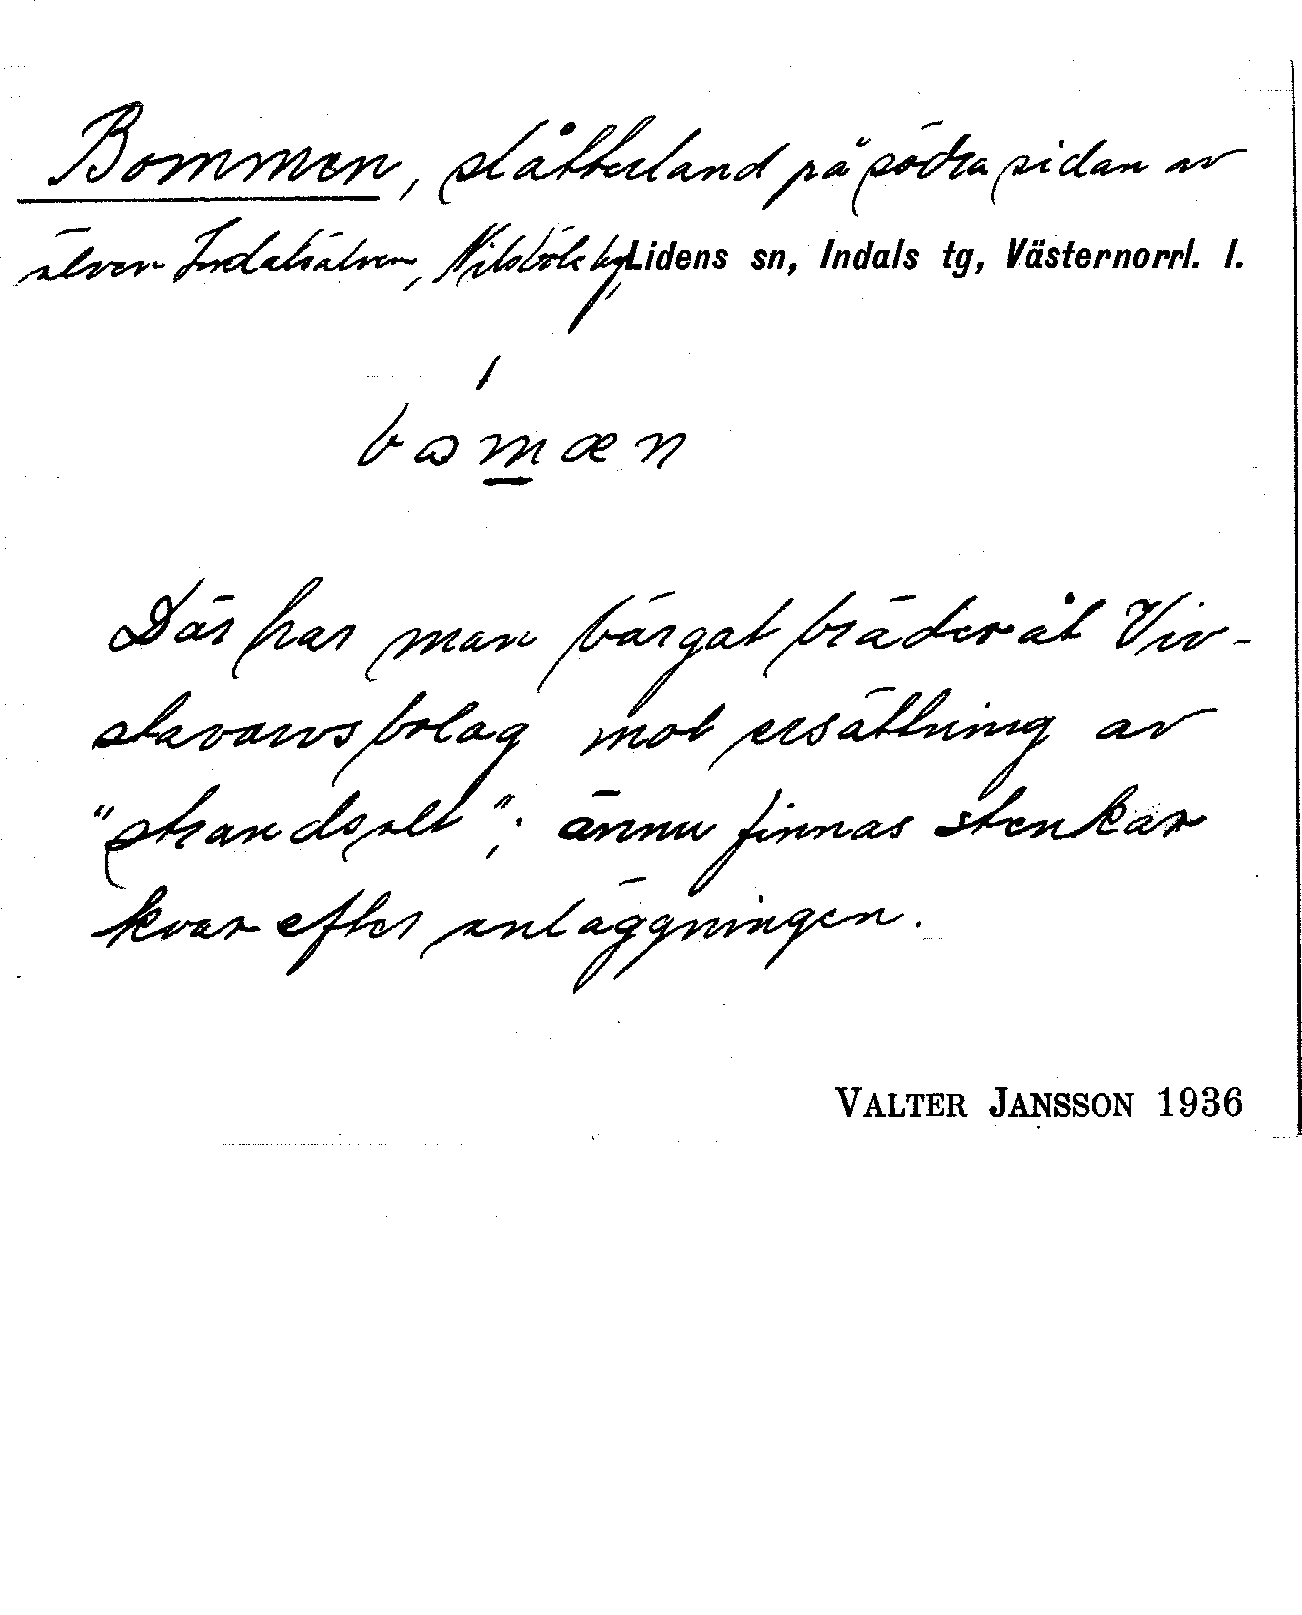 Bommen, slåtterland på södra sidan av
älven Indalsälven, Nilsböle by, Lidens sn, Indals tg, Västernorrl. l.
bomæn
Där har man bärgat bräder åt Viv-
stavarvsbolag mot ersättning av
"strandsalt"; ännu finnas stenkar
kvar efter anläggningen.
VALTER JANSSON 1936